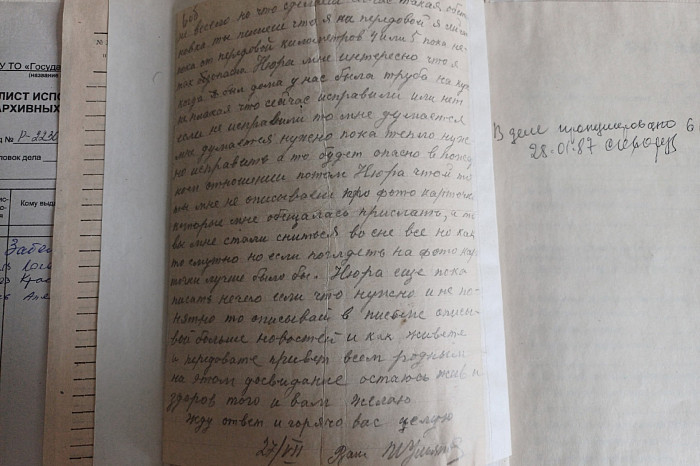 У ТО «Госуда
(название
ЛИСТ ИСПО
АРХИВНЫХ
д № Р-2230
ловок дела
Кому выд
не всего но что сделаеш сейчас такая обста
новка ты пишеш что я на передовой я
пока от передовой километров 4 или 5 пока не
так опасно Нюра мне интересно что я
когда был дома у нас была труба на кух
не плохая что сейчас исправили или нет
если не исправили то мне думается
мне думается нужно пока тепло нуж
но исправить а то будет опасно в пожар
ном отношении потом Нюра что ж то
ты мне не описываеш про фото карточки
которые мне обещалась прислать, а то
вы мне стали сниться во сне все но как
то смутно но если поглядеть на фото кар
точки лучше было бы. Нюра еще пока
писать нечего если что нужно и не по
нятно то описывай в письме описы
вай больше новостей и как живете
и передовате привет всем родным
на этом досвидание остаюсь жив и
здоров того и вам желаю
Жду ответ и горячо вас целую
27/VII Ваш
В деле пронумеровано 6
28.01.87